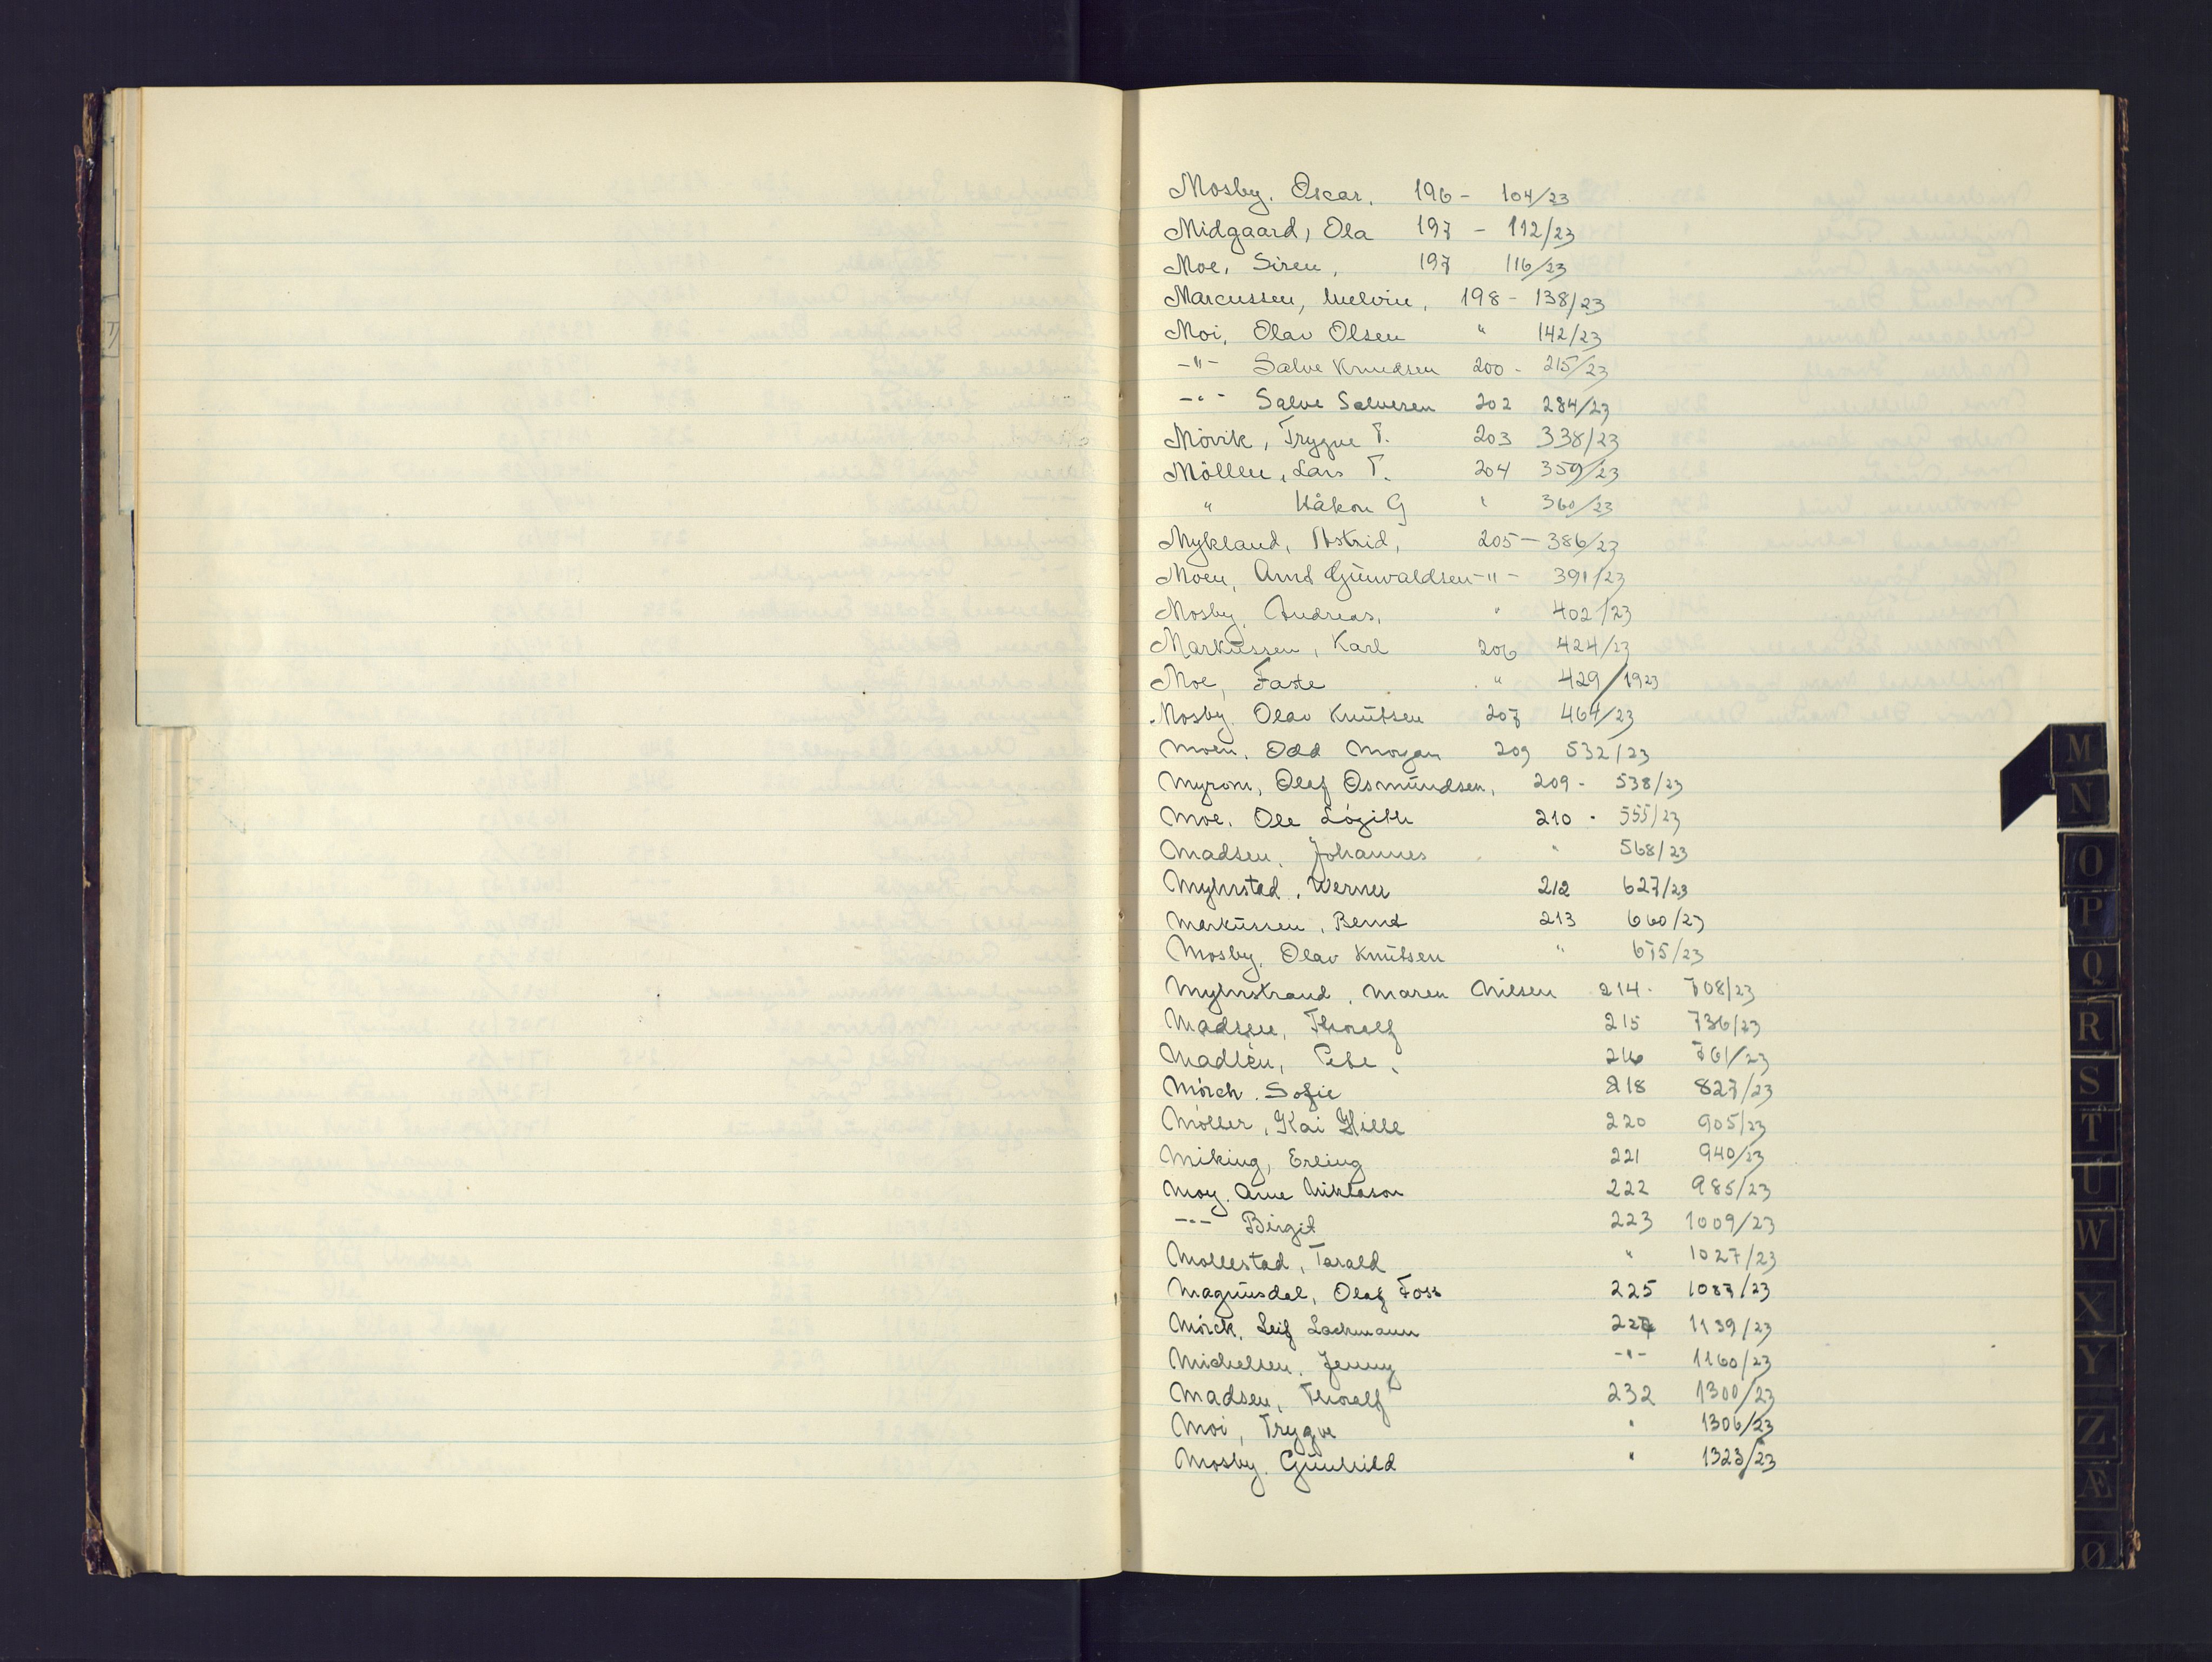 Mosby, Oscar, 196 - 104/23
Midgaard, Ola 197 - 112/23
Moe, Siren, 197 116/23
Marcussen, Melvin, 198 - 138/23
Moi, Olav Olsen " 142/23
-"- Salve Knudsen 200 - 215/23
-"- Salve Salvesen 202 284/23
Mövik, Trygve T. 203 338/23
Möller, Lars T. 204 359/23
" Håkon G " 360/23
Mykland, Astrid, 205 - 386/23
Moen, Arnt Gunvaldsen -"- 391/23
Mosby, Andreas, " 402/23
Markussen, Karl 206 424/23
Moe, Faste " 429/1923
Mosby, Olav Knutsen 207 464/23
Moen, Odd Morgan 209 532/23
Myrom, Olef Osmundsen, 209 - 538/23
Moe, Ole 210 - 555/23
Madsen, Johannes " 568/23
Myhrstad, Werner 212 627/23
Markussen, Bernt 213 660/23
Mosby, Olav Knutsen " 675/23
Myhrstrand, Maren Nilsen 214 - 708/23
Madsen, Thoralf 215 736/23
216 761/23
Mörch, Sofie 218 827/23
Möller, Kai Hille 220 905/23
Miking, Erling 221 940/23
Moy, Arne Niklason 222 985/23
-"- Birgit 223 1009/23
Mollestad, Tarald " 1027/23
Magnusdal, Olaf Foss 225 1087/23
Mörck, Leif Lachmann 227 1139/23
Michelsen, Jenny -"- 1160/23
Madsen, Thoralf 232 1300/23
Moi, Trygve " 1306/23
Mosby, Gunhild " 1323/23
M
N
O
P
Q
R
S
T
U
W
X
Y
Z
Æ
Ø